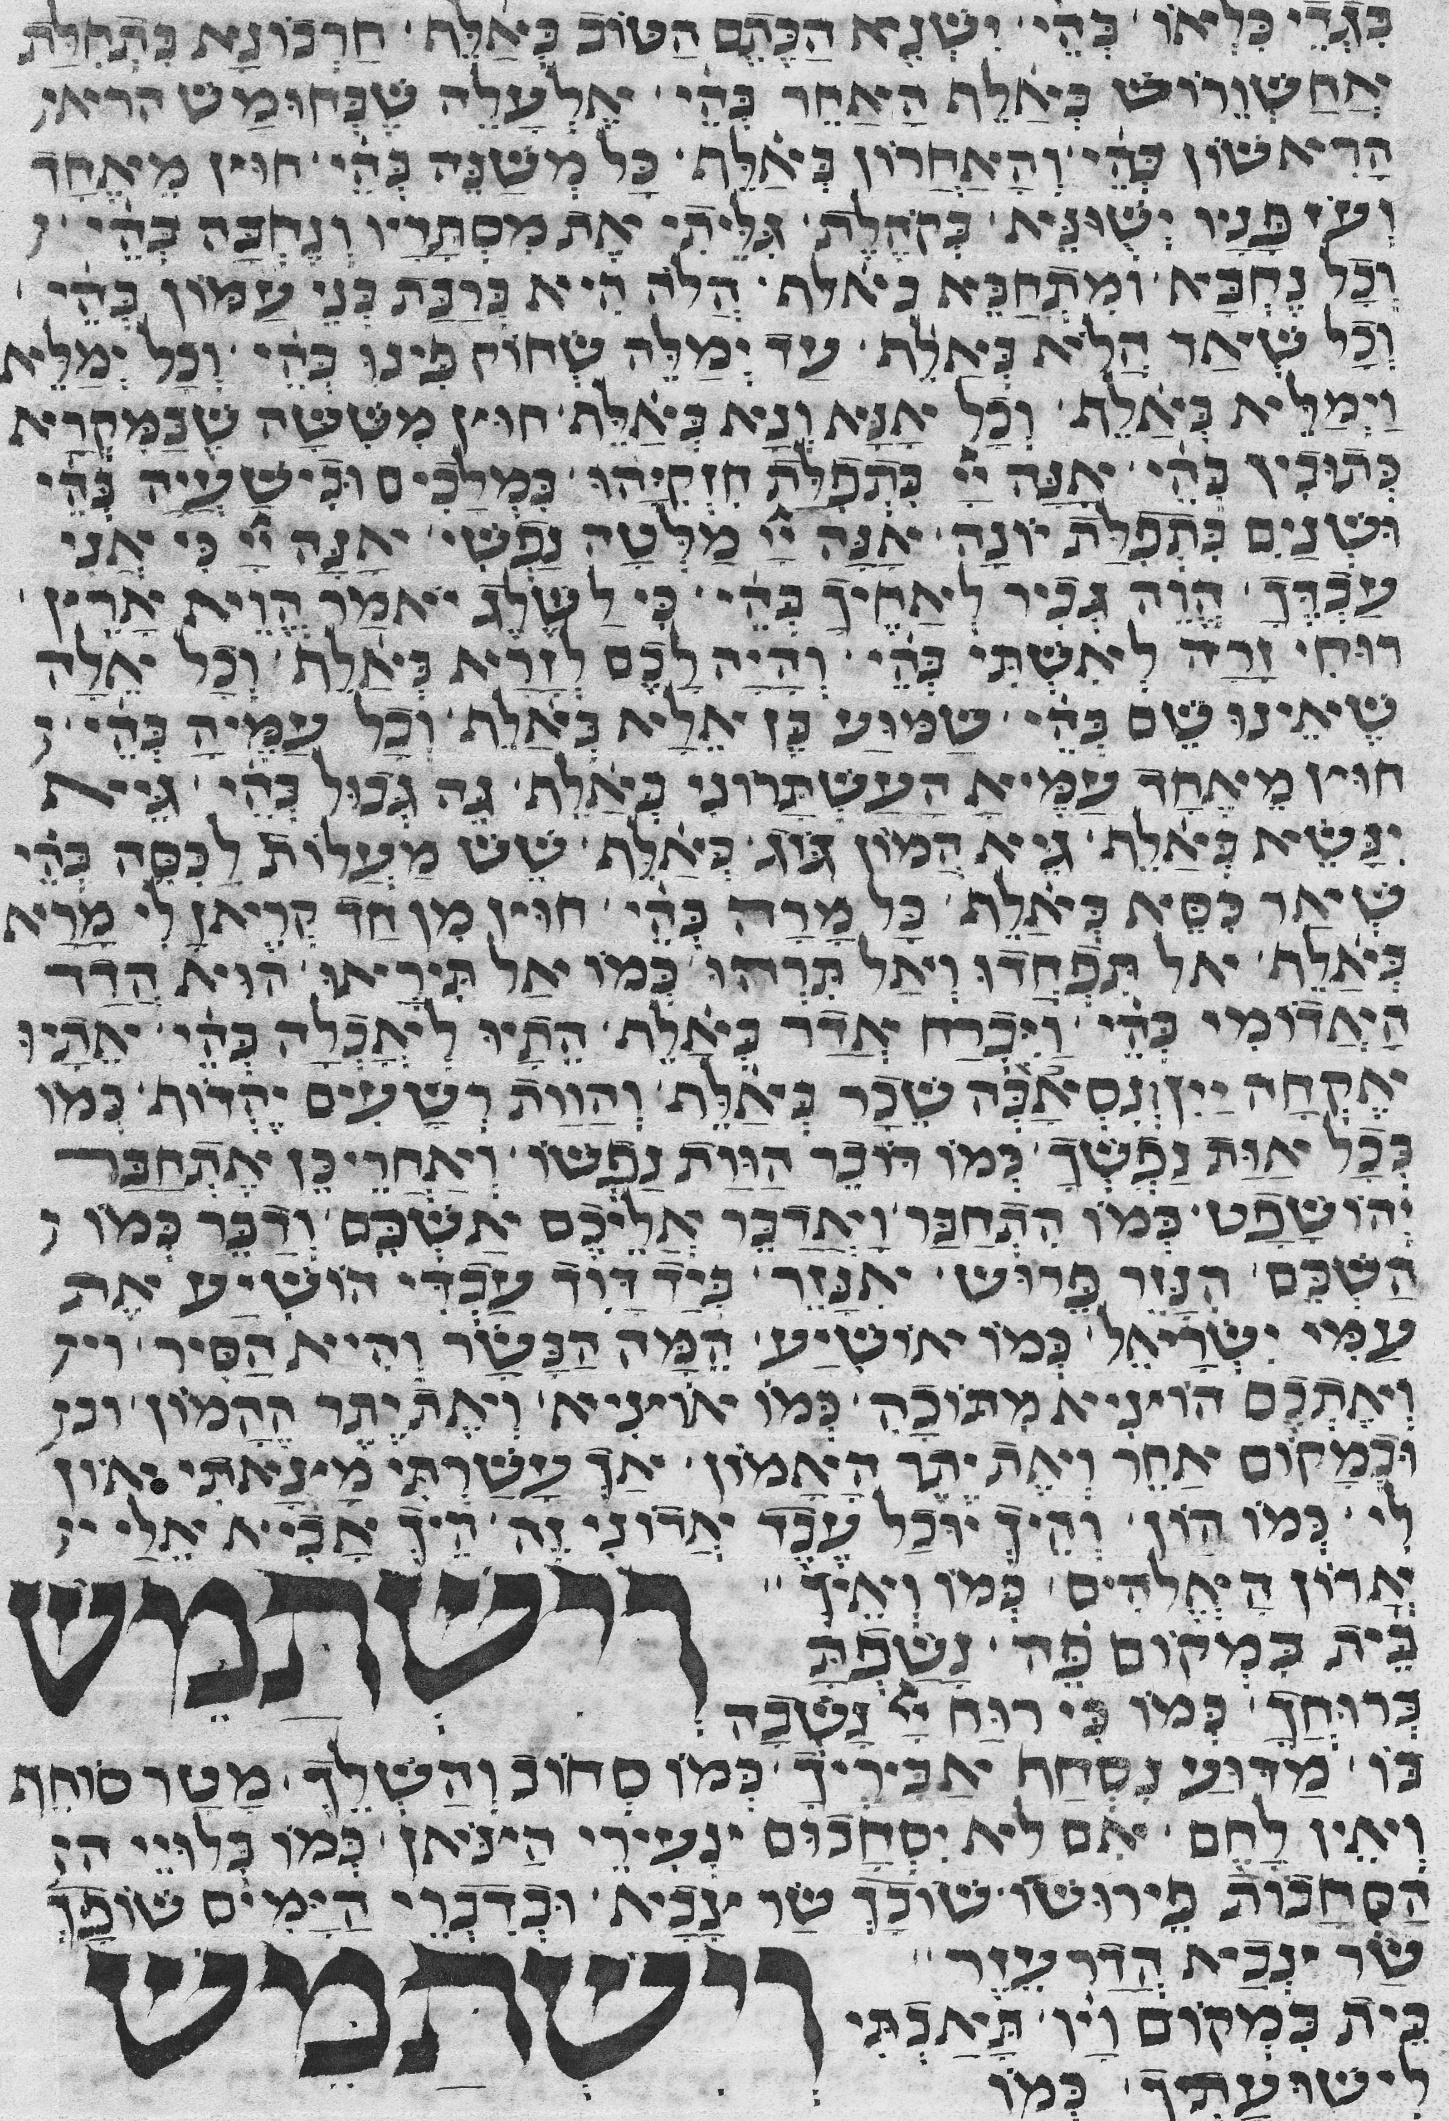 בִּגְדֵי כִלְאוֹ בְּהֵי יִשְׁנֶא הַכֶּתֶם הַטּוֹב בְּאָלֶף חַרְבוֹנָא בִּתְחִלַּת
אֲחַשְׁוֵרוֹשׁ בְּאָלֶף הָאַחֵר בְּהֵי אֶלְעָלֵה שֶׁבְּחוּמַשׁ הראי
הָרִאשׁוֹן בְּהֵי וְהָאַחֲרוֹן בְּאָלֶף כָּל מְשַׁנֶּה בְּהֵי חוּץ מֵאֶחָד
וְעֹז פָּנָיו יְשֻׁנֶּא בְּקֹהֶלֶת גִּלֵּיתִי אֶת מִסְתָּרָיו וְנֶחְבָּה בְּהֵי
וְכָל נֶחְבָּא וּמִתְחַבֵּא בְּאָלֶף הֲלֹה הִיא בְּרַבַּת בְּנֵי עַמּוֹן בְּהֵי
וְכָל שְׁאָר הֲלֹא בְּאָלֶף עַד יְמַלֶּה שְׂחוֹק פִּינוּ בְּהֵי וְכָל יְמַלֵּא
וַיְמַלֵּא בְּאָלֶף וְכָל אָנָּא וְנָא בְּאָלֶף חוּץ מִשִּׁשָּׁה שֶׁבַּמִּקְרָא
כְּתוּבִין בְּהֵי אָנָּה יְיָ בִּתְפִלַּת חִזְקִיָּהוּ בִּמְלָכִים וּבִישַׁעְיָה בְּהֵי
וּשְׁנַיִם בִּתְפִלַּת יוֹנָה אָנָּה יְיָ מַלְּטָה נַפְשִׁי אָנָּה יְיָ כִּי אֲנִי
עַבְדֶּךָ הֱוֵה גְבִיר לְאַחֶיךָ בְּהֵי כִּי לַשֶּׁלֶג יֹאמַר הֱוֵא אָרֶץ
רוּחִי זָרָה לְאִשְׁתִּי בְּהֵי וְהָיָה לָכֶם לְזָרָא בְּאָלֶף וְכָל אֵלָה
שֶׁאֵינוּ שֵׁם בְּהֵי שַׁמּוּעַ בֶּן אֵלָא בְּאָלֶף וְכָל עַמִּיָה בְּהֵי
חוּץ מֵאֶחָד עֻזִּיָּא הָעַשְׁתְּרוֹנִי בְּאָלֶף גֵּה גְבוּל בְּהֵי גֵּיא
יִנָּשֵׂא בְּאָלֶף גֵּיא הֲמוֹן גּוֹג בְּאָלֶף שֵׁשׁ מַעֲלוֹת לַכִּסֵּה בְּהֵי
שְׁאָר כִּסֵּא בְּאָלֶף כָּל מָרָה בְּהֵי חוּץ מִן חַד קְרֶאןָ לִי מָרָא
בְּאָלֶף אַל תִּפְחֲדוּ וְאַל תִּרְהוּ כְּמוֹ אַל תִּירְאוּ הוּא הֲדַד
הָאֲדֹמִי בְּהֵי וַיִּבְרַח אֲדַד בְּאָלֶף הֵתָיוּ לְאָכְלָה בְּהֵי אֵתָיוּ
אֶקְחָה יַיִן וְנִסְאֲבָּה שֵׁכָר בְּאָלֶף וְהַוַּת רְשָׁעִים יֶהְדּוֹת כְּמוֹ
בְּכָל אַוַּת נַפְשְׁךָ כְּמוֹ דּוֹבֵר הַוַּת נַפְשׁוֹ וְאַחֲרֵי כֵן אֶתְחַבַּר
יְהוֹשָׁפָט כְּמוֹ הִתְחַבַּר וָאֲדַבֵּר אֲלֵיכֶם אַשְׁכֵּם וְדַבֵּר כְּמוֹ
הַשְׁכֵּם הִנָּזֵר פֵּרוּשׁ אִנָּזֵר בְּיַד דָּוִד עַבְדִּי הוֹשִׁיעַ אֶת
עַמִּי יִשְׂרָאֵל כְּמוֹ אוֹשִׁיעַ הֵמָּה הַבָּשָׂר וְהִיא הַסִּיר וי
וְאֶתְכֶם הוֹצִיא מִתּוֹכָהּ כְּמוֹ אוֹצִיא וְאֶת יֶתֶר הֶהָמוֹן וכו
וּבְמָקוֹם אַחֵר וְאֶת יֶתֶר הָאָמוֹן אַךְ עָשַׁרְתִּי מָצָאתִי אוֹן
לִי כְּמוֹ הוֹן וְהֵיךְ יוּכַל עֶבֶד אֲדוֹנִי זֶה הֵיךְ אָבִיא אֵלַי
אֲרוֹן הָאֱלֹהִים כְּמוֹ וְאֵיךְ
בֵּית בִּמְקוֹם פֵּה נָשַׁפְתָּ
בְרוּחֲךָ כְּמוֹ כִּי רוּחַ יְיָ נָשְׁבָה
בּוֹ מַדּוּעַ נִסְחַף אַבִּירֶיךָ כְּמוֹ סָחוֹב וְהַשְׁלֵךְ מָטָר סוֹחֵף
וְאֵין לָחֶם אִם לֹא יִסְחָבוּם צְעִירֵי הַצֹּאן כְּמוֹ בְּלוֹיֵי הי
הַסְּחָבוֹת פֵּירוּשׁוֹ שׁוֹבָךְ שַׂר צָבָא וּבְדִבְרֵי הַיָּמִים שׁוֹפָךְ
שַׂר צְבָא הֲדַרְעֶזֶר
בֵּית בִּמְקוֹם וָיו תָּאַבְתִּי
לִישׁוּעָתְךָ כְּמוֹ